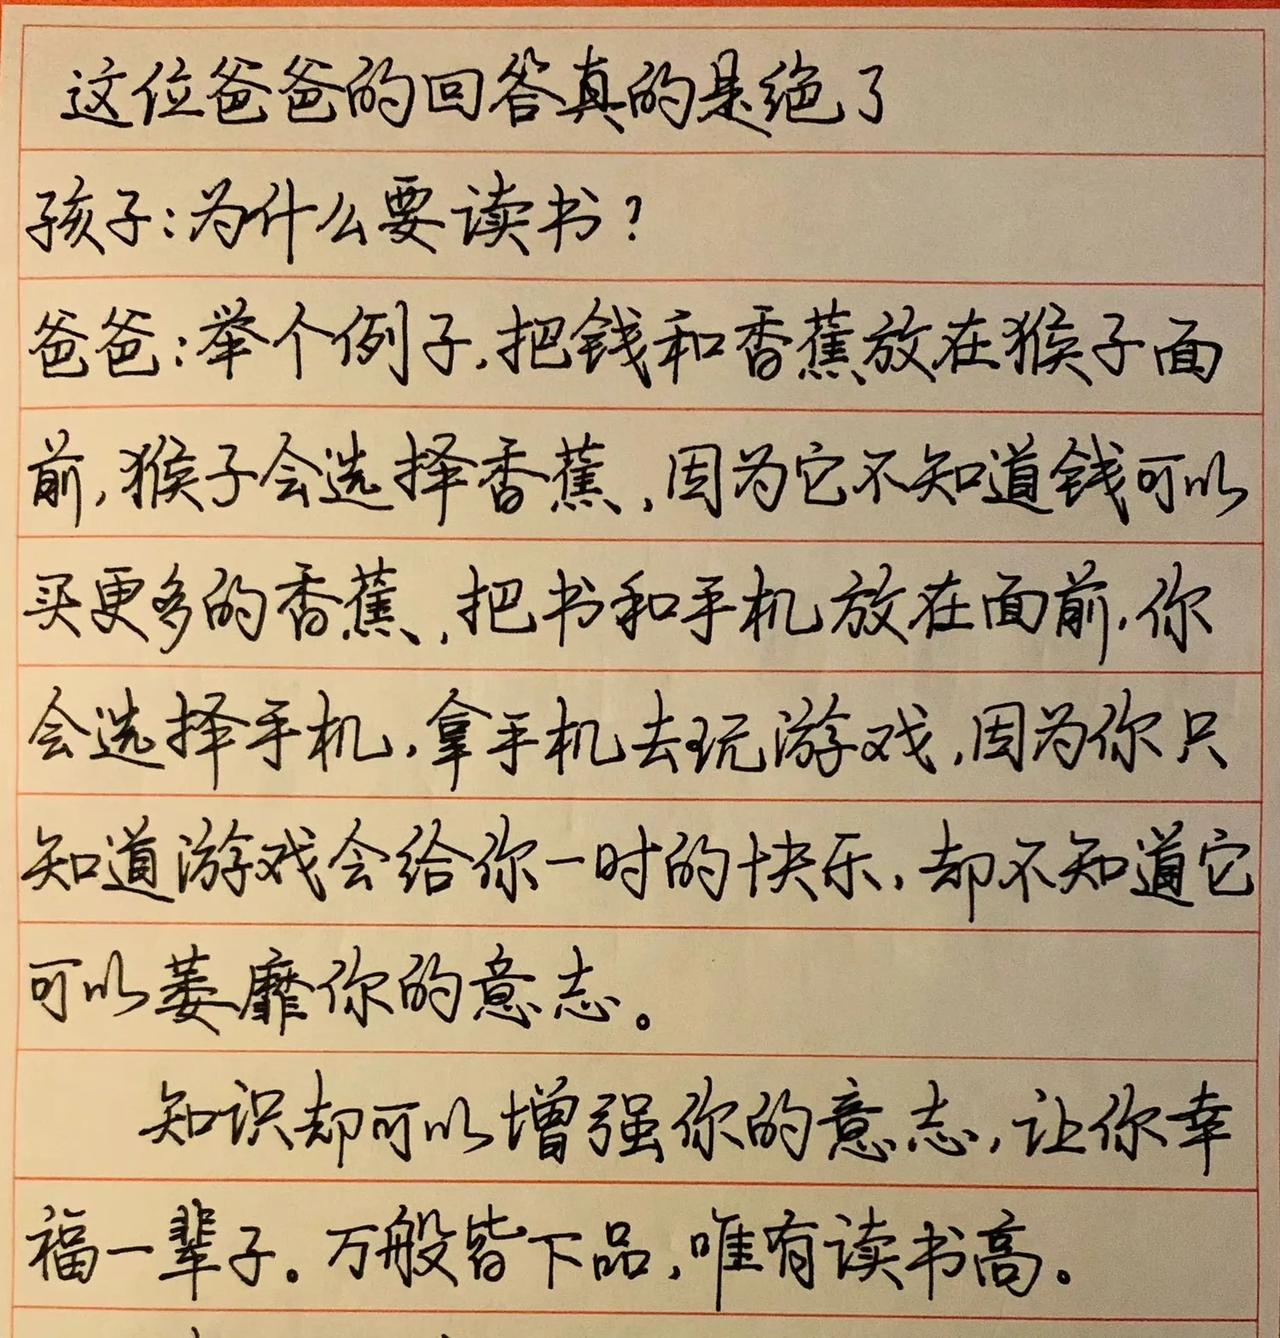 这位爸爸的回答真的是绝了
孩子:为什么要读书?
爸爸:举个例子,把钱和香蕉放在猴子面
前,猴子会选择香蕉,因为它不知道钱可以
买更多的香蕉,把书和手机放在面前,你
会选择手机,拿手机去玩游戏,因为你只
知道游戏会给你一时的快乐,却不知道它
可以萎靡你的意志。
知识却可以增强你的意志,让你幸
福一辈子。万般皆下品,唯有读书高。